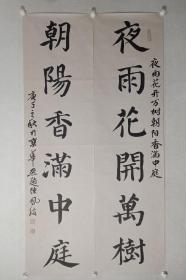 夜雨花開萬樹
夜雨花开万树朝阳香满中庭
朝陽香滿中庭
庚子之秋於京華